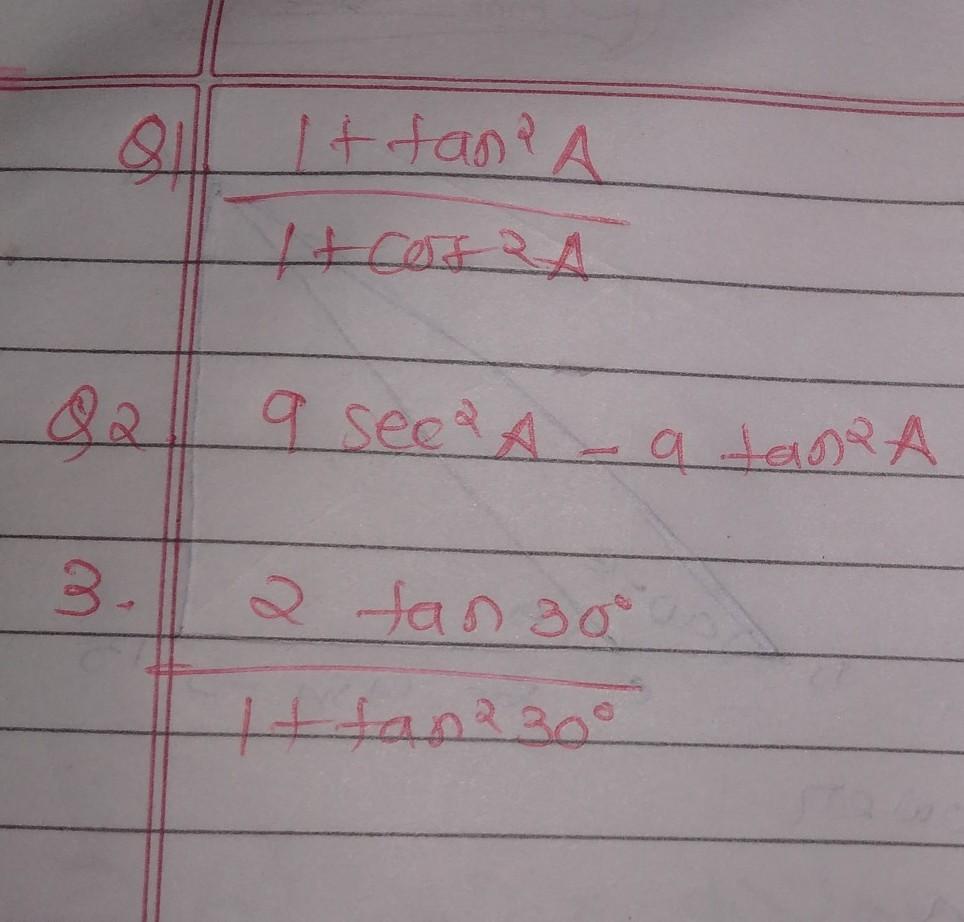 Q1 1 + tan² A
1 + cot²A
Q2 9 sec² A - 9 tan² A
3. 2 tan 30°
1 + tan² 30°